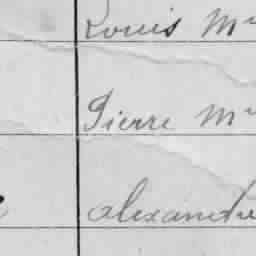 Louis Mr
Pierre Mr
Alexandre